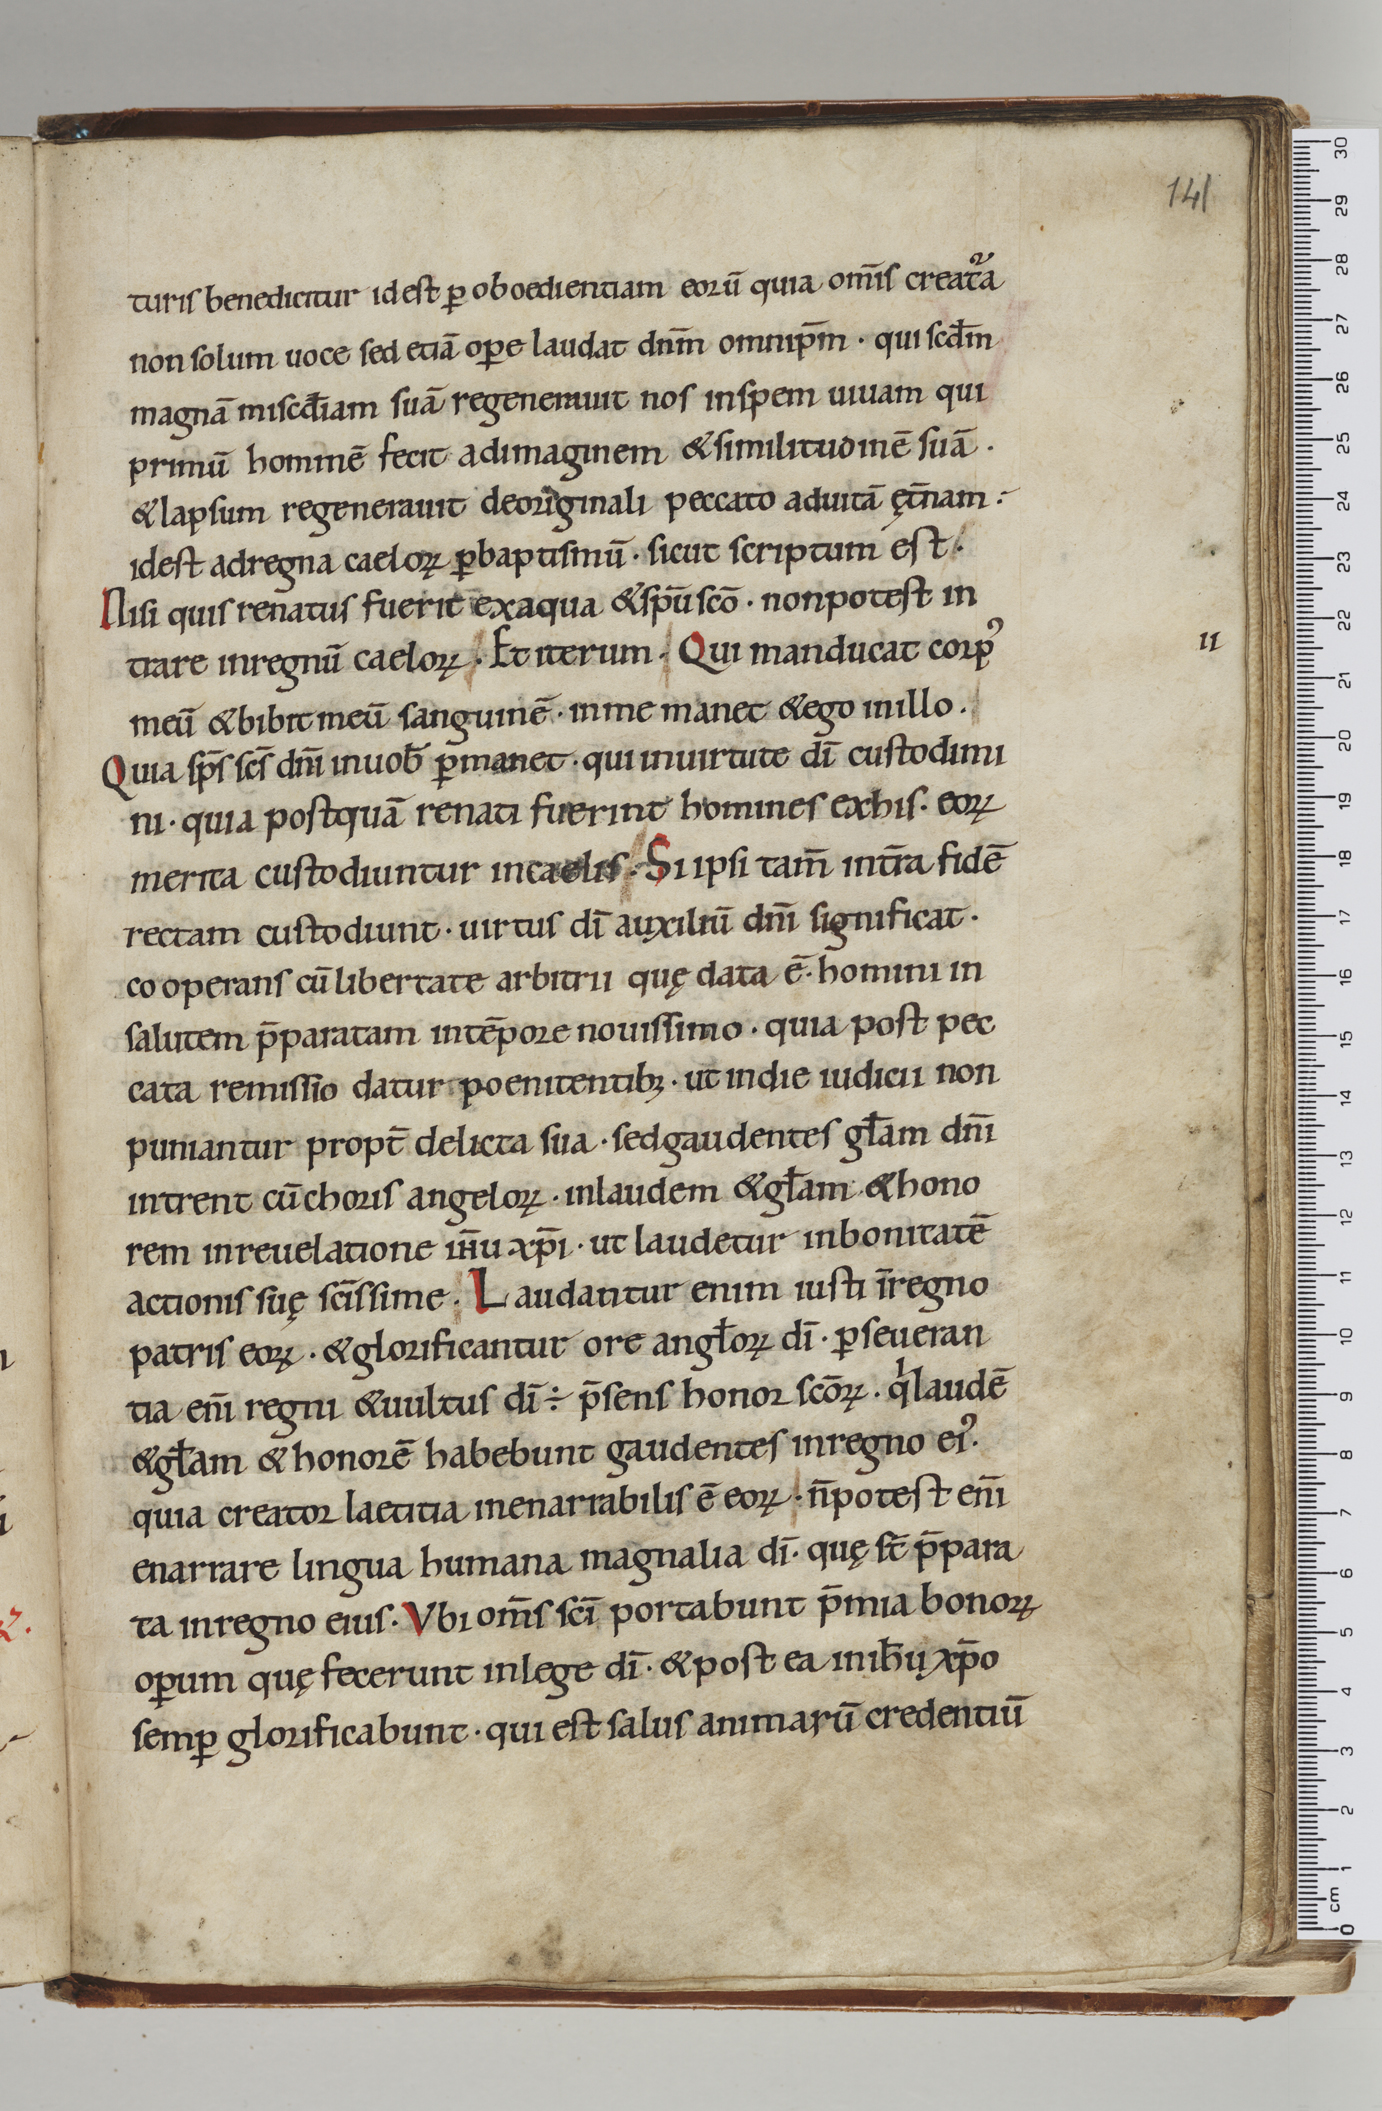 141
turis benedicitur id est ꝑ oboedientiam eorū quia om̄is creat᷑a
non solum uoce sed etiā oꝑe laudat dn̄m omnip̄m · qui scd̄m
magnā miscd̄iam suā regenerauit nos in spem uiuam qui
primū hominē fecit ad imaginem & similitudinē suā ·
& lapsum regenerauit de originali peccato ad uitā ęt̄nam :
id est ad regna caeloꝝ ꝑ baptismū · sicut scriptum est ·
Nisi quis renatus fuerit ex aqua & sp̄u sc̄o · non potest in
trare in regnū caeloꝝ · Et iterum · Qui manducat corpꝰ
meū & bibit meū sanguinē · in me manet & ego in illo ·
Quia sp̄s sc̄s dn̄i in uob̄ ꝑmanet · qui in uirtute dī custodimi
ni · quia postquā renati fuerint homines ex his · eoꝝ
merita custodiuntur in caelis · Si ipsi tam̄ int̄ra fidē
rectam custodiunt · uirtus dī auxiliū dn̄i significat ·
cooperans cū libertate arbitrii quę data ē · homini in
salutem p̄paratam in tēpore nouissimo · quia post pec
cata remissio datur poenitentibꝫ · ut in die iudicii non
puniantur propt̄ delicta sua · sed gaudentes gl̄am dn̄i
intrent cū choris angeloꝝ · in laudem & gl̄am & hono
rem in reuelatione ih̄u xp̄i · ut laudetur in bonitatē
actionis suę sc̄issime · Laudantur enim iusti ī regno
patris eoꝝ · & glorificantur ore angl̄oꝝ dī · ꝑseueran
tia en̄i regni & uultus dī ÷ p̄sens honor sc̄oꝝ · qͥ laudē
& gl̄am & honorē habebunt gaudentes in regno eiꝰ ·
quia creator laetitia inenarrabilis ē eoꝝ · n̄ potest en̄i
enarrare lingua humana magnalia dī · quę st̄ p̄para
ta in regno eius · Vbi om̄s sc̄i portabunt p̄mia bonoꝝ
oꝑum quę fecerunt in lege dī · & post ea in ih̄u xp̄o
semꝑ glorificabunt · qui est salus animarū credentiū
II